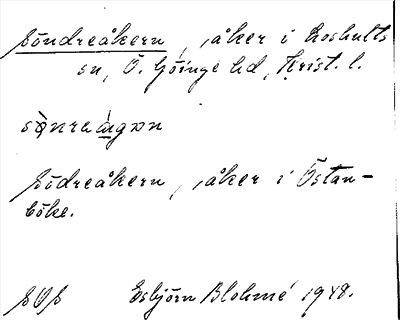 Söndreåkern, åker i Loshults
sn, Ö. Göinge hd, Krist. l.
sønreågən
Södreåkern, åker i Östan-
böke.
SOS Esbjörn Blohmé 1948.